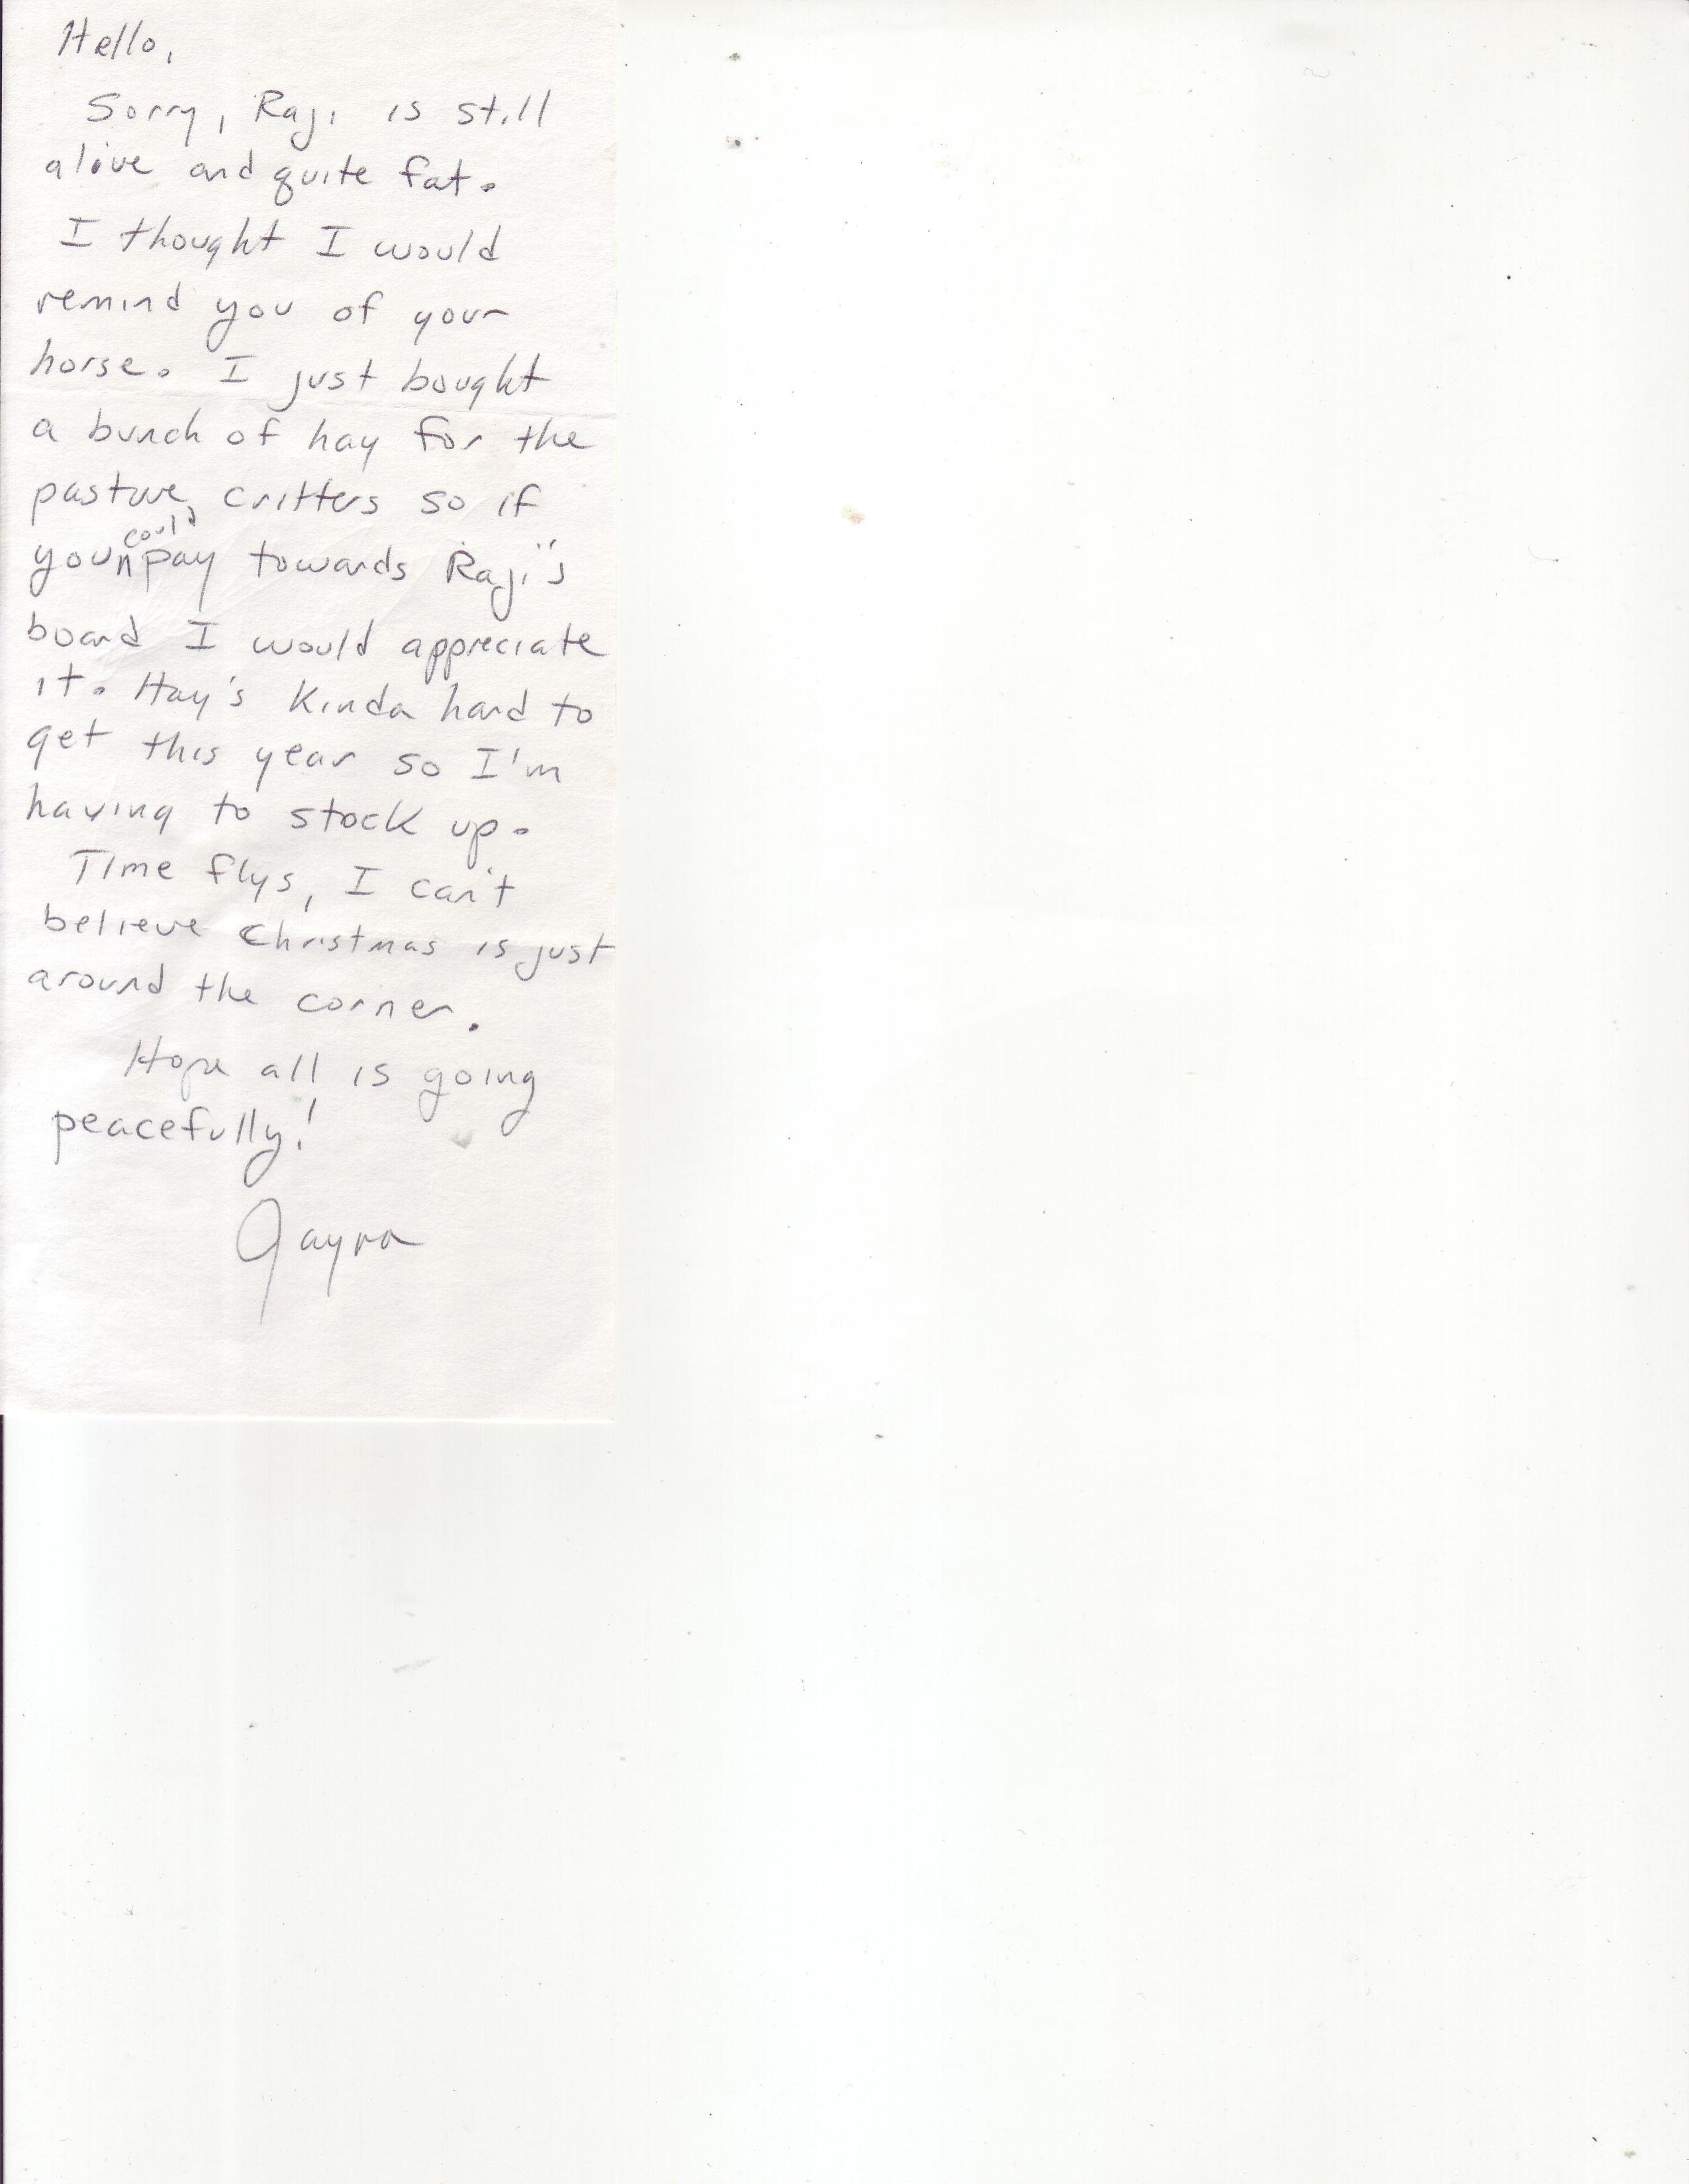 Hello,
Sorry, Raji is still
alive and quite fat.
I thought I would
remind you of your
horse. I just bought
a bunch of hay for the
pasture critters so if
you could pay towards Raji's
board I would appreciate
it. Hay's kinda hard to
get this year so I'm
having to stock up.
Time flys, I can't
believe Christmas is just
around the corner.
Hope all is going
peacefully!
Jayna